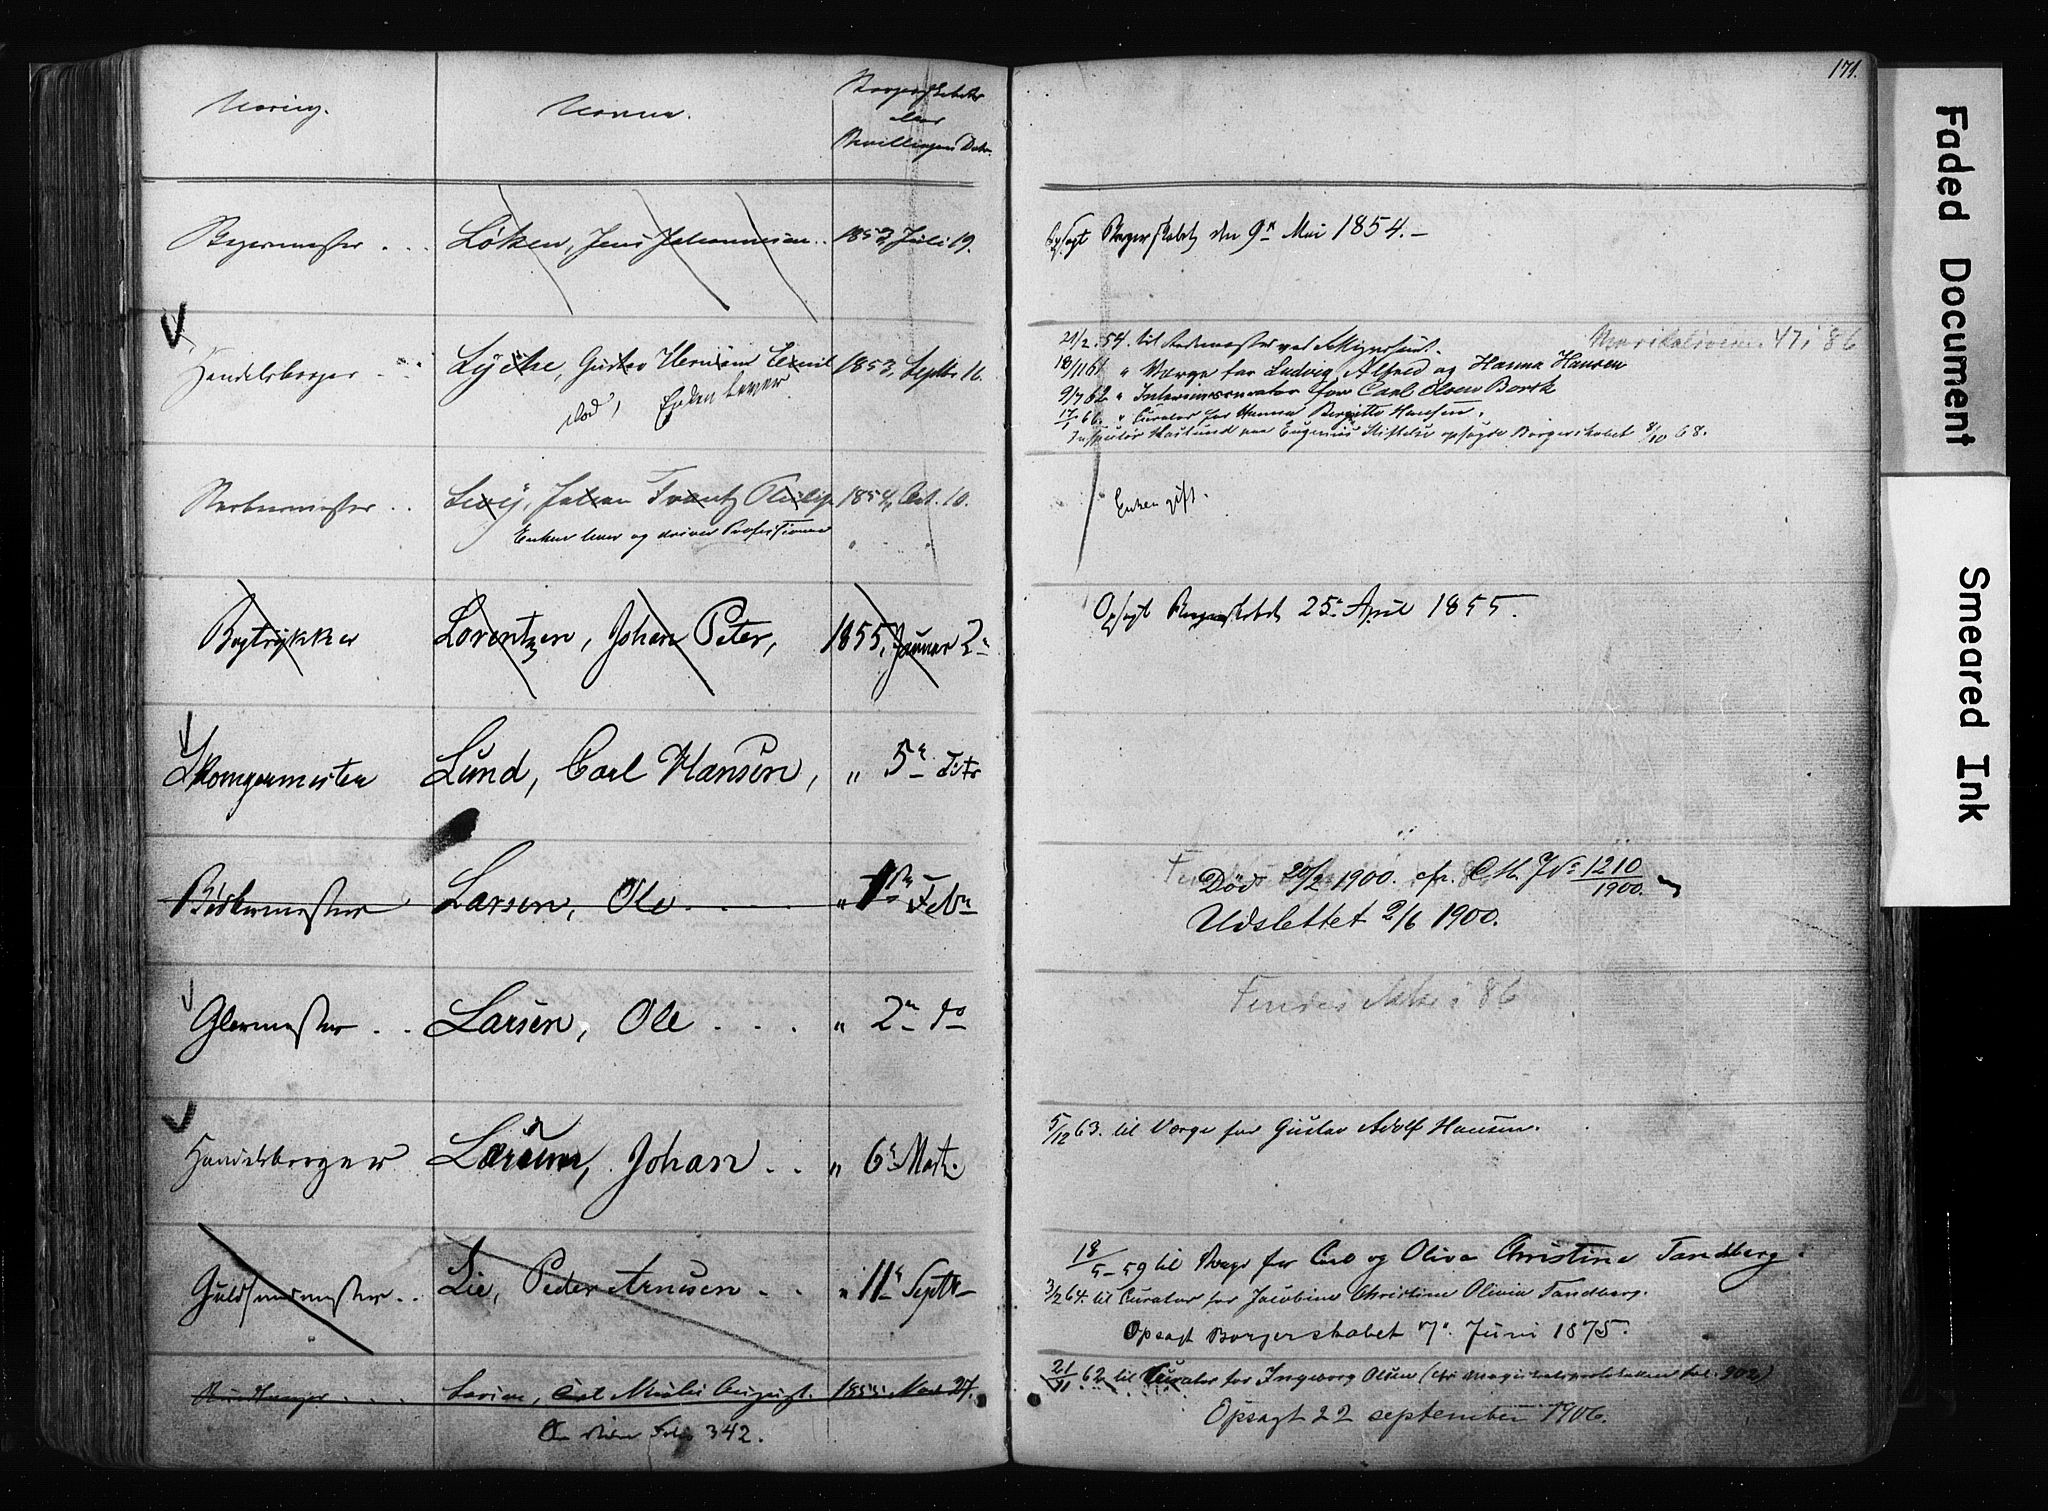 171.
Næring.
Navne.
Borgerskabets
eller
Bevillingens Dato.
Bagermester . . . Løken, Jens Johannesen . . 1853, Juli 19.
Opsagt Borgerskabet den 9de Mai 1854. –
Handelsborger . . Lÿche, Gustav Herman Emil 1853, Septbr 16.
død, Enken lever
21/2. 54. til Rodemester ved
47 i 86
18/11 61 " Værge for Ludvig, Alfred og Hanna Hansen
9/7 62 " Interimscurator for Carl Olsen Bork
17/1 66. " Curator for Hanna Birgitte Hansen.
Inspectør paa Eugenias Stiftelse opsagde Borgerskabet 8/10 68.
. . Levÿ, Johan Frantz Philip 1854, Oct. 10.
Enken lever og driver Professionen
Enken gift.
Bogtrÿkker Lorentzen, Johan Peter, 1855, Januar 2
Opsagt Borgerskabet 25. April 1855.
Skomagermester Lund, Carl Hansen, " 5
Larsen, Ole . . . . " Febr
Død 20/2 1900. cfr. C. M. J No 1210/1900.
Udslettet 2/6 1900.
Glarmester . . Larsen, Ole . . . " 2 do
Findes ikke i 86
Handelsborger Larsen, Johan . . " 6 Marts.
5/12 63. til Værge for Gustav Adolf Hansen.
Guldsmedmester . . Lie, Peder Arnesen . . " 11 Septbr
18/5 – 59 til Værge for Carl og Oliva Christine Tandberg.
3/2 64. til Curator for Jacobine Christine Olivia Tandberg.
Opsagt Borgerskabet 7. Juni 1875.
. . . Larsen, Carl August. 1855. 27.
Se videre Folio 342.
21/11 62 til Curator for Ingeborg Olsen (cfr Magistratsprotokollen fol. 902)
Opsagt 22 september 1906.
Faded Document
Smeared Ink